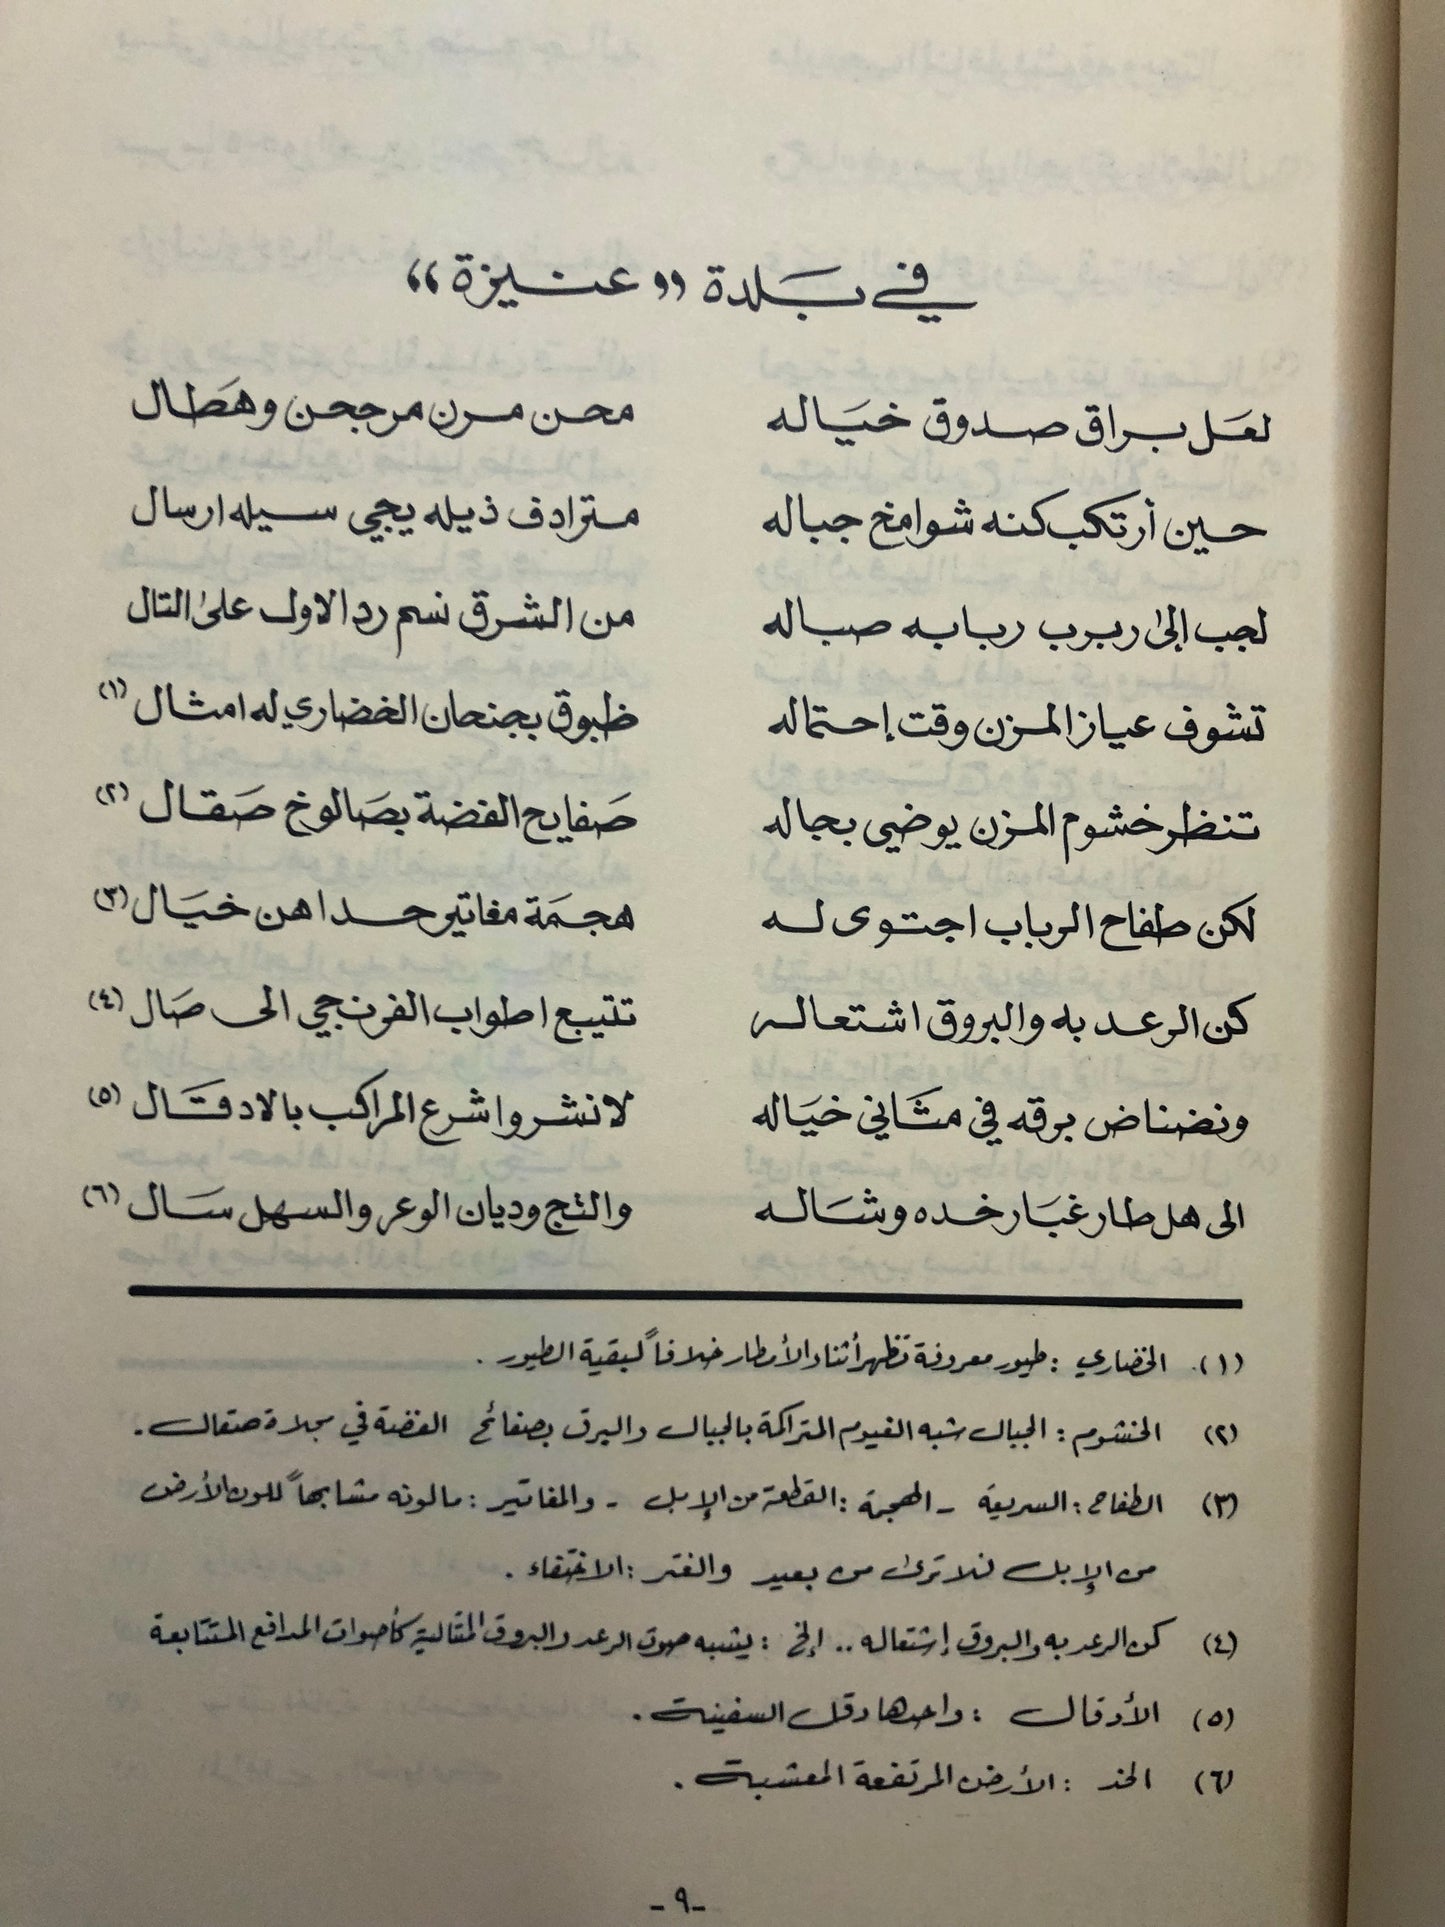 في بلدة «عنيزة»
لعل براق صدوق خياله محن مرن مرجحن وهطال
حين أرتكب كنه شوامخ جباله مترادف ذيله يجي سيله ارسال
لجب إلى ربرب ربابه صباله من الشرق نسم رد الاول على التال
تشوف عياز المزن وقت إحتماله ظبوق بجنحان الخضاري له امثال (١)
تنظر خشوم المزن يوضي بجاله صفايح الفضة بصالوخ صقال (٢)
لكن طفاح الرباب اجتوى له هجمة مغاتير حداهن خيال (٣)
كن الرعد به والبروق اشتعاله تتيبع اطواب الفرنجي الى صال (٤)
ونضناض برقه في مثاني خياله لا نشروا شرع المراكب بالادقال (٥)
الى هل طار غبار خده وشاله والتج وديان الوعر والسهل سال (٦)
(١). الخضاري : طيور معروفة تظهر أثناء الأمطار خلافاً لبقية الطيور .
(٢) الخشوم : الجبال شبه الغيوم المتراكمة بالجبال والبرق بصفائح الفضة في بجلادة صقال .
(٣) الطفاح : السريعة - الهجمة : القطعة من الإبل - والمغاتير : مالونه مشابهاً للون الأرض
من الإبل فلا ترى من بعيد والغتر : الاختفاء .
(٤) كن الرعد به والبروق إشتعاله .. إلخ : يشبه صوت الرعد والبروق المتتالية كأصوات المدافع المتتابعة
(٥) الأدقال : واحدها دقل السفينة .
(٦) الخد : الأرض المرتفعة المعشبة .
- ٩ -